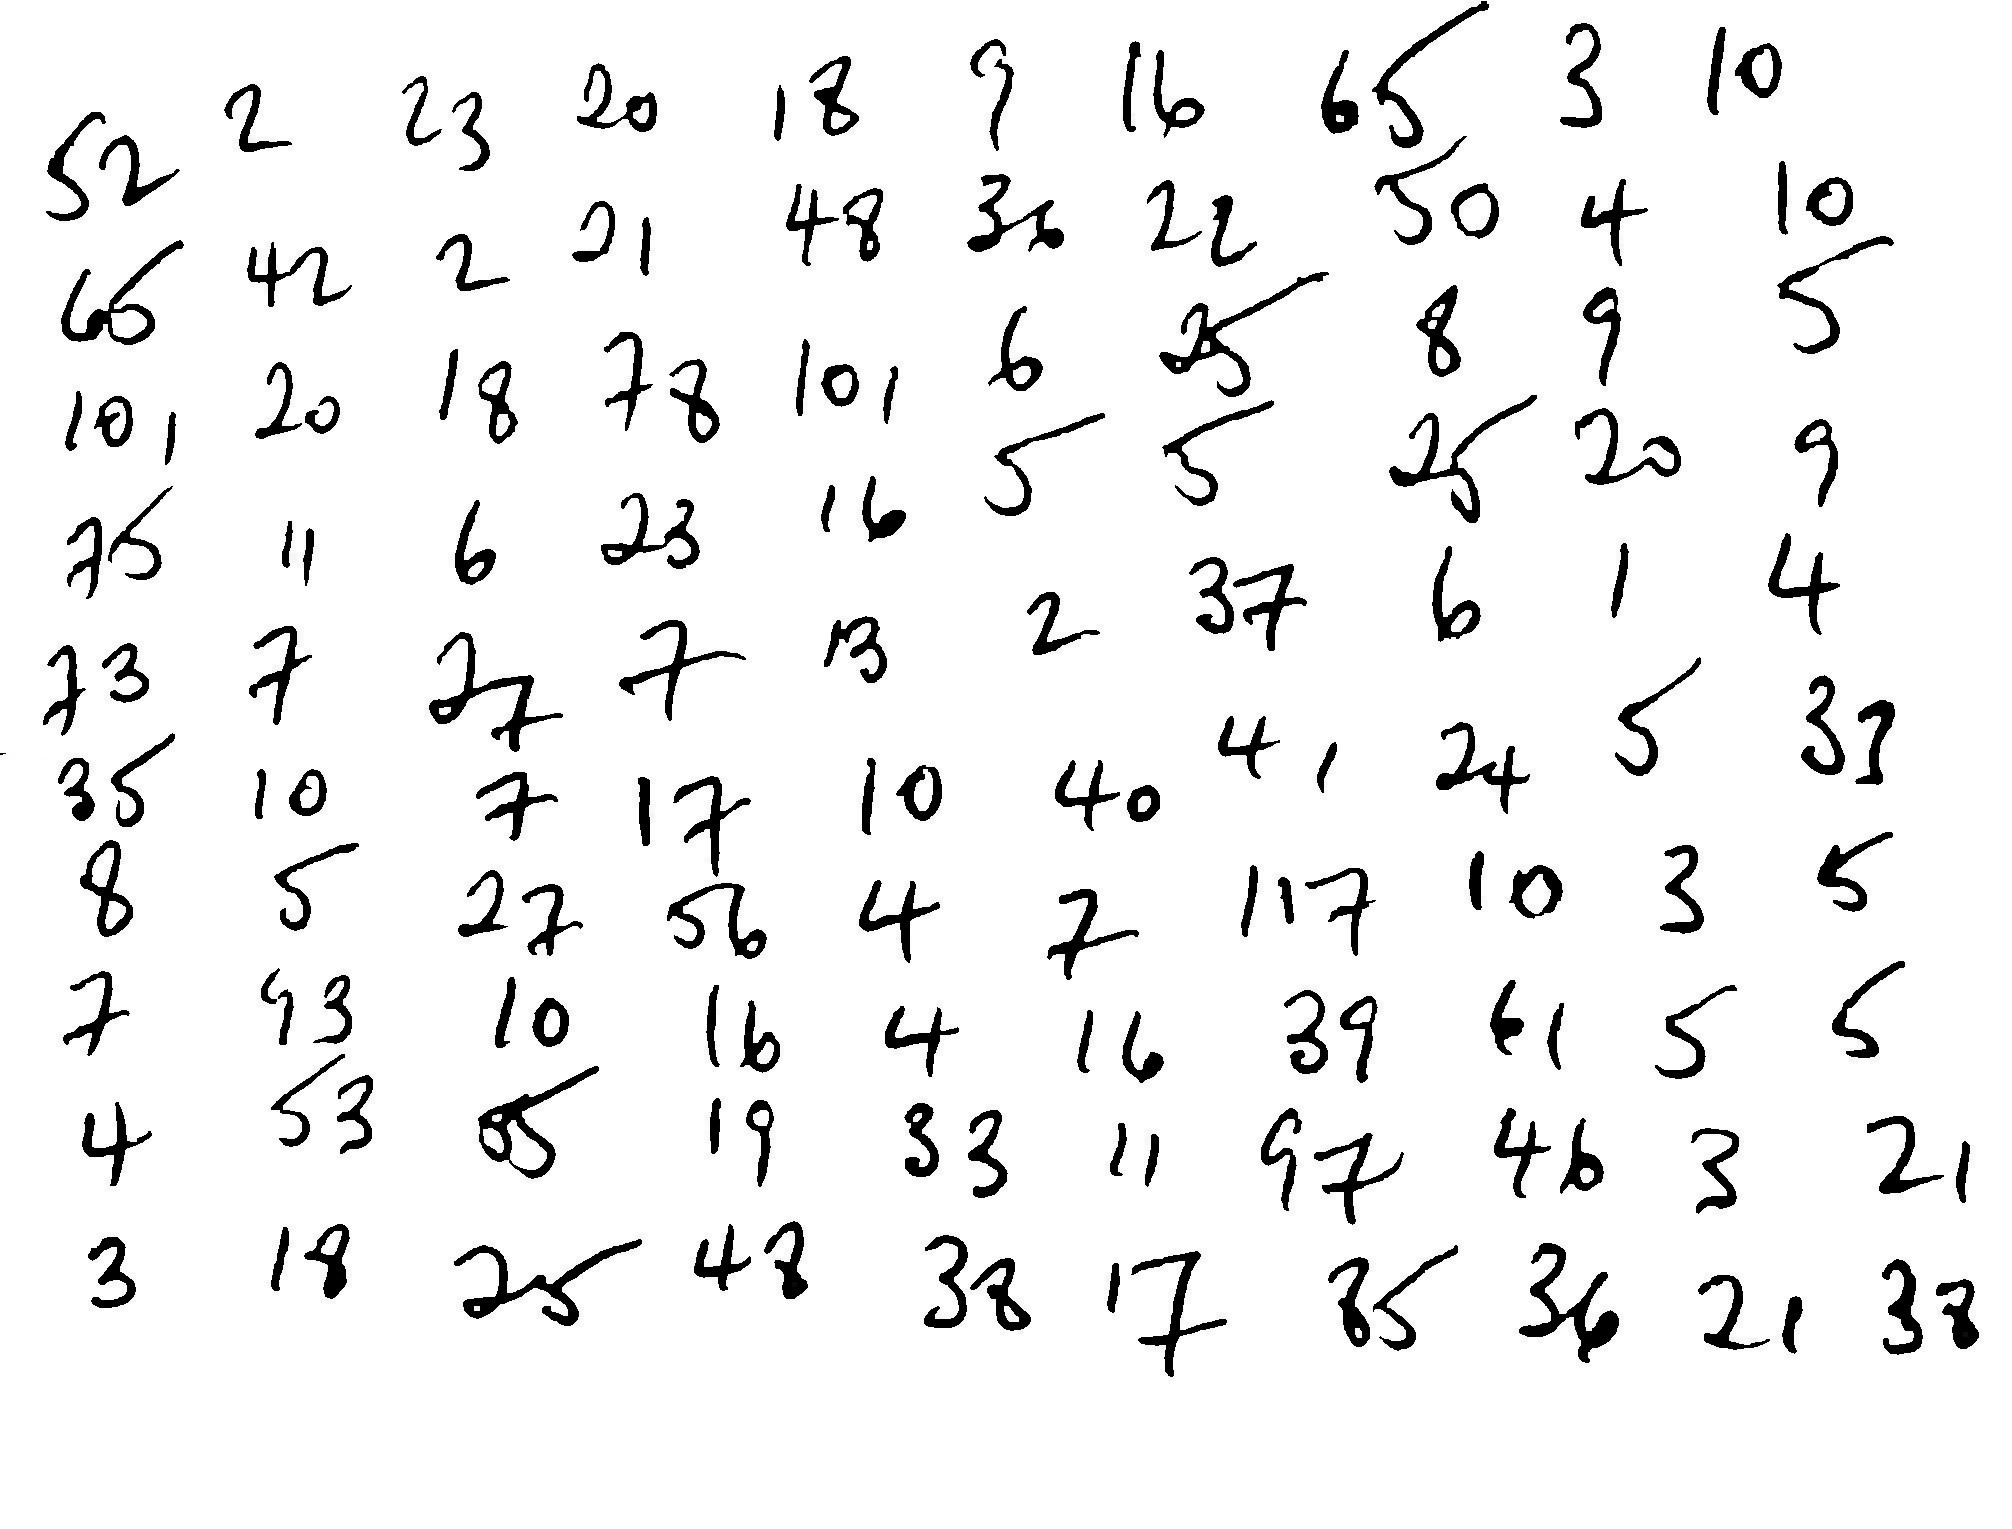 52 2 23 20 18 9 16 65 3 10
65 42 2 21 48 36 22 50 4 10
101 20 18 78 101 6 25 8 9 5
75 11 6 23 16 5 5 25 20 9
73 7 27 7 13 2 37 6 1 4
35 10 7 17 10 40 41 24 5 33
8 5 27 56 4 7 117 10 3 5
7 93 10 16 4 16 39 61 5 5
4 53 19 33 11 97 46 3 21
3 18 25 48 38 17 85 36 21 38